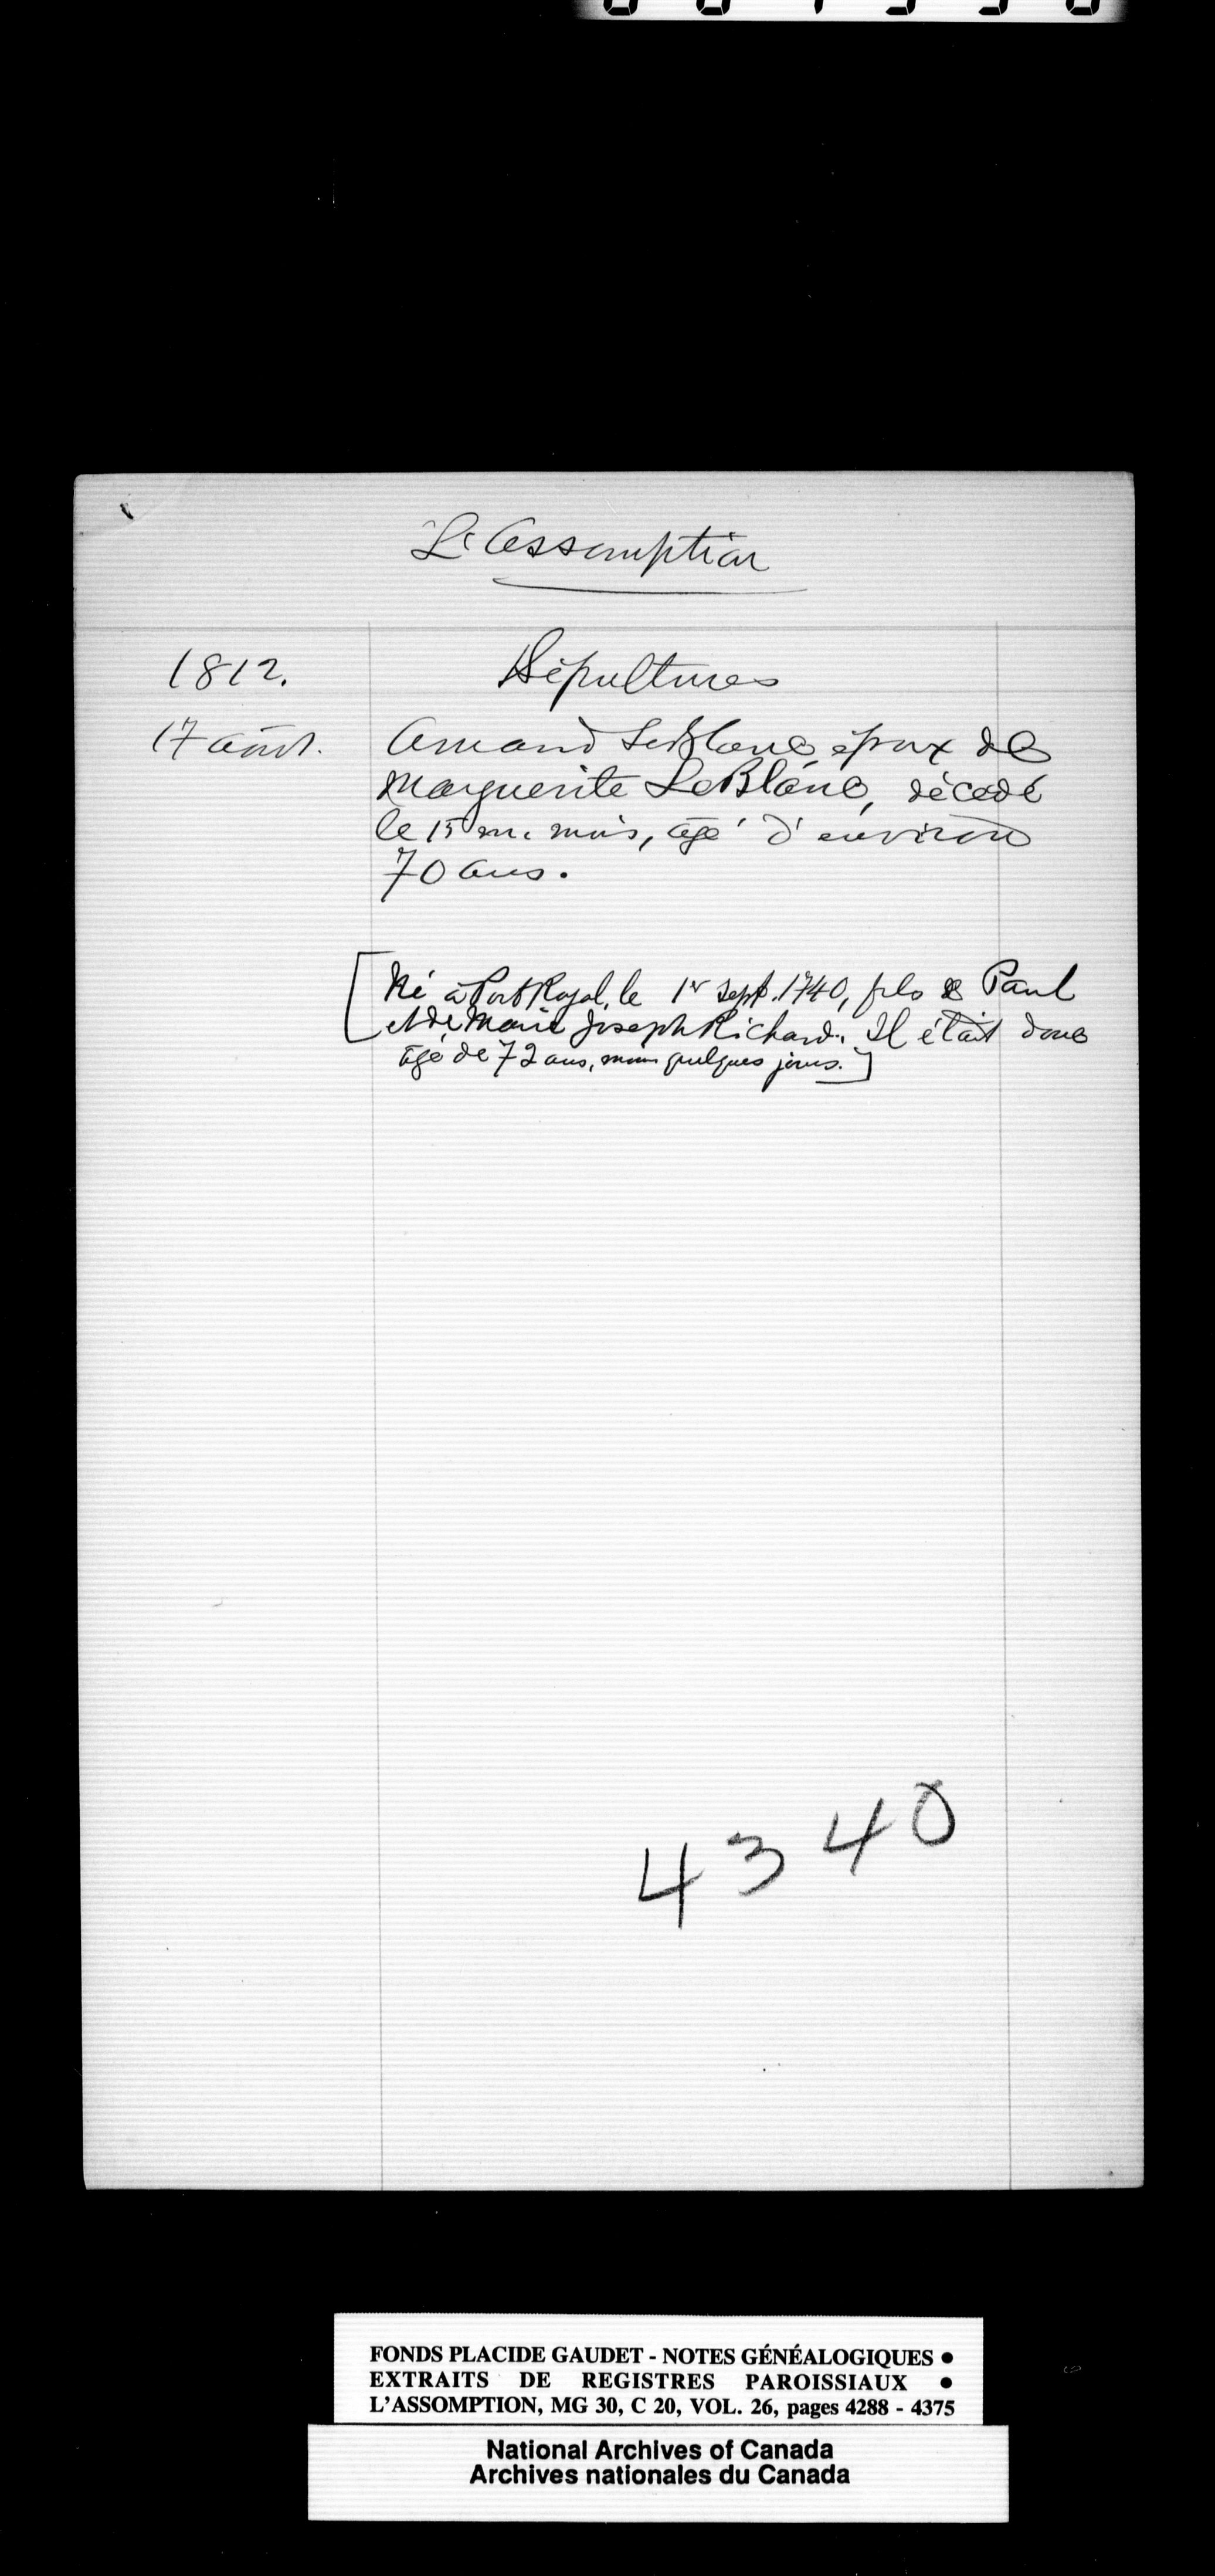 L'Assomption
1812.
Sépultures
17 août.
Amand LeBlanc, époux de
Marguerite LeBlanc, décédé
le 15 m. mois, âgé d'environ
70 ans.
[Né à Port Royal, le 1er sept. 1740, fils de Paul
et de Marie Joseph Richard. Il était donc
âgé de 72 ans, moins quelques jours.]
4340
FONDS PLACIDE GAUDET - NOTES GÉNÉALOGIQUES •
EXTRAITS DE REGISTRES PAROISSIAUX •
L'ASSOMPTION, MG 30, C 20, VOL. 26, pages 4288 - 4375
National Archives of Canada
Archives nationales du Canada